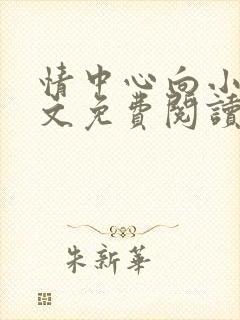 情中心向小
文免費閱讀
朱新華